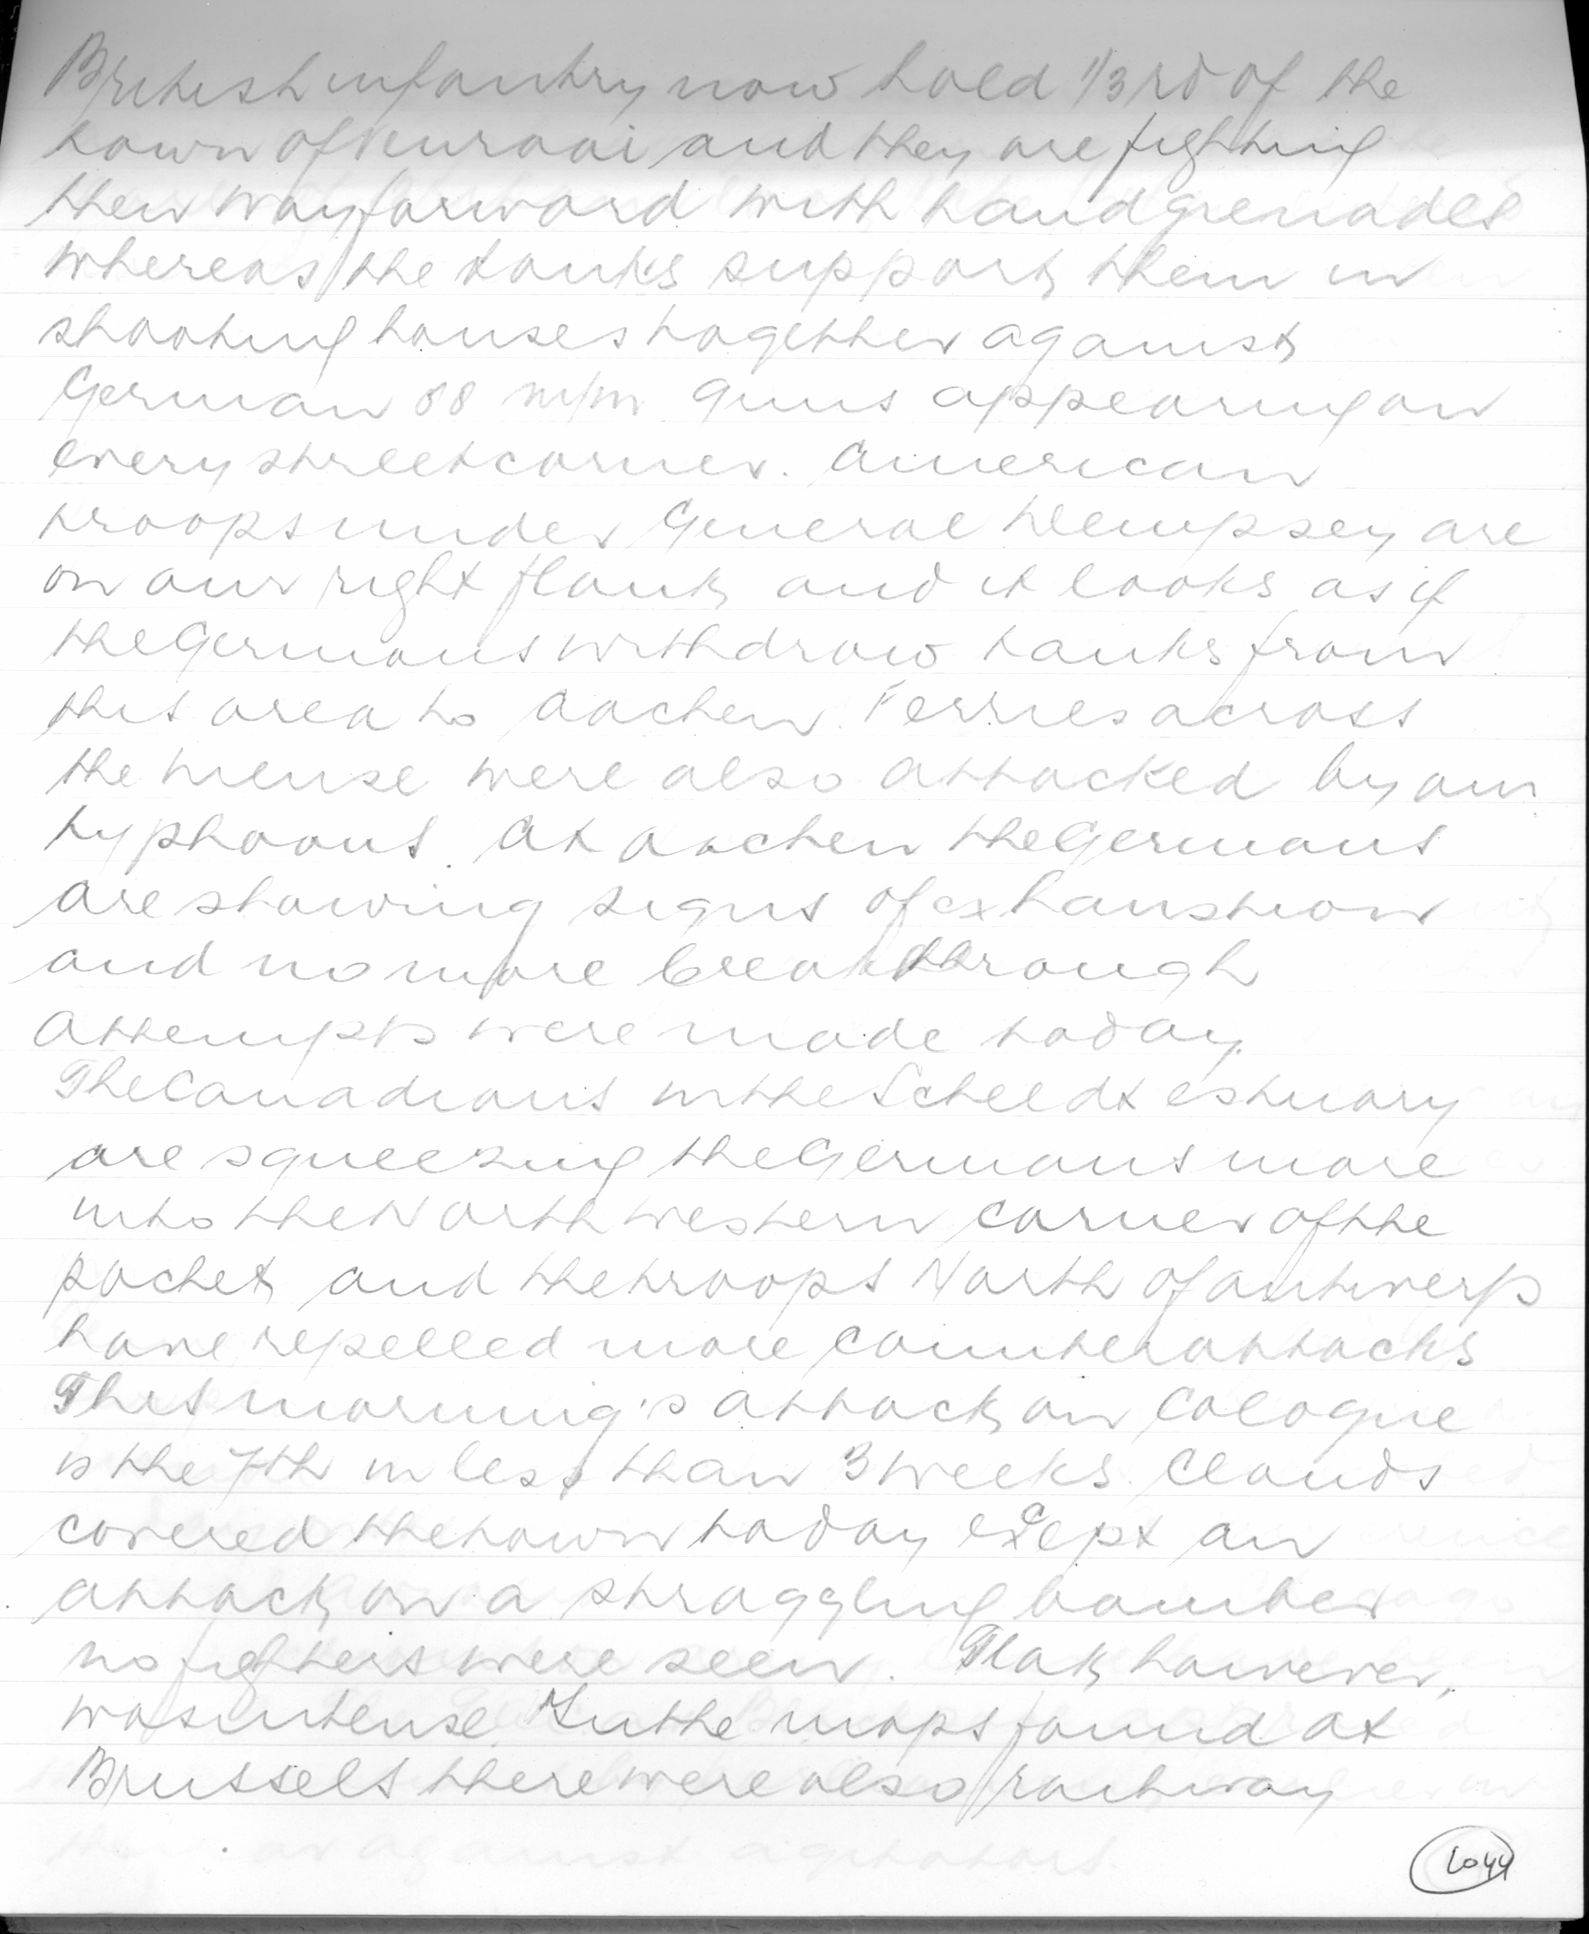 British infantry now hold 1/3 rd of the
town of Venraai and they are fighting
their way forward with handgrenades
whereas the tanks support them in
shooting houses together against
German 88 m/m guns appearing on
every streetcorner. American
troops under General Dempsey are
on our right flank and it looks as if
the Germans withdraw tanks from
this area to Aachen. Ferries across
the Meuse were also attacked by our
typhoons. At Aachen the Germans
are showing signs of exhaustion
and no more breakthrough
attempts were made today.
The Canadians in the Scheldt estuary
are squeezing the Germans more
into the North western corner of the
pocket and the troops North of Antwerp
have repelled more counterattacks
This morning's attack on Cologne
is the 7th in less than 3 weeks. Clouds
covered the town today except an
attack on a straggling bomber
no fighters were seen. Flak however,
was intense. In the maps found at
Brussels there were also railway
1044